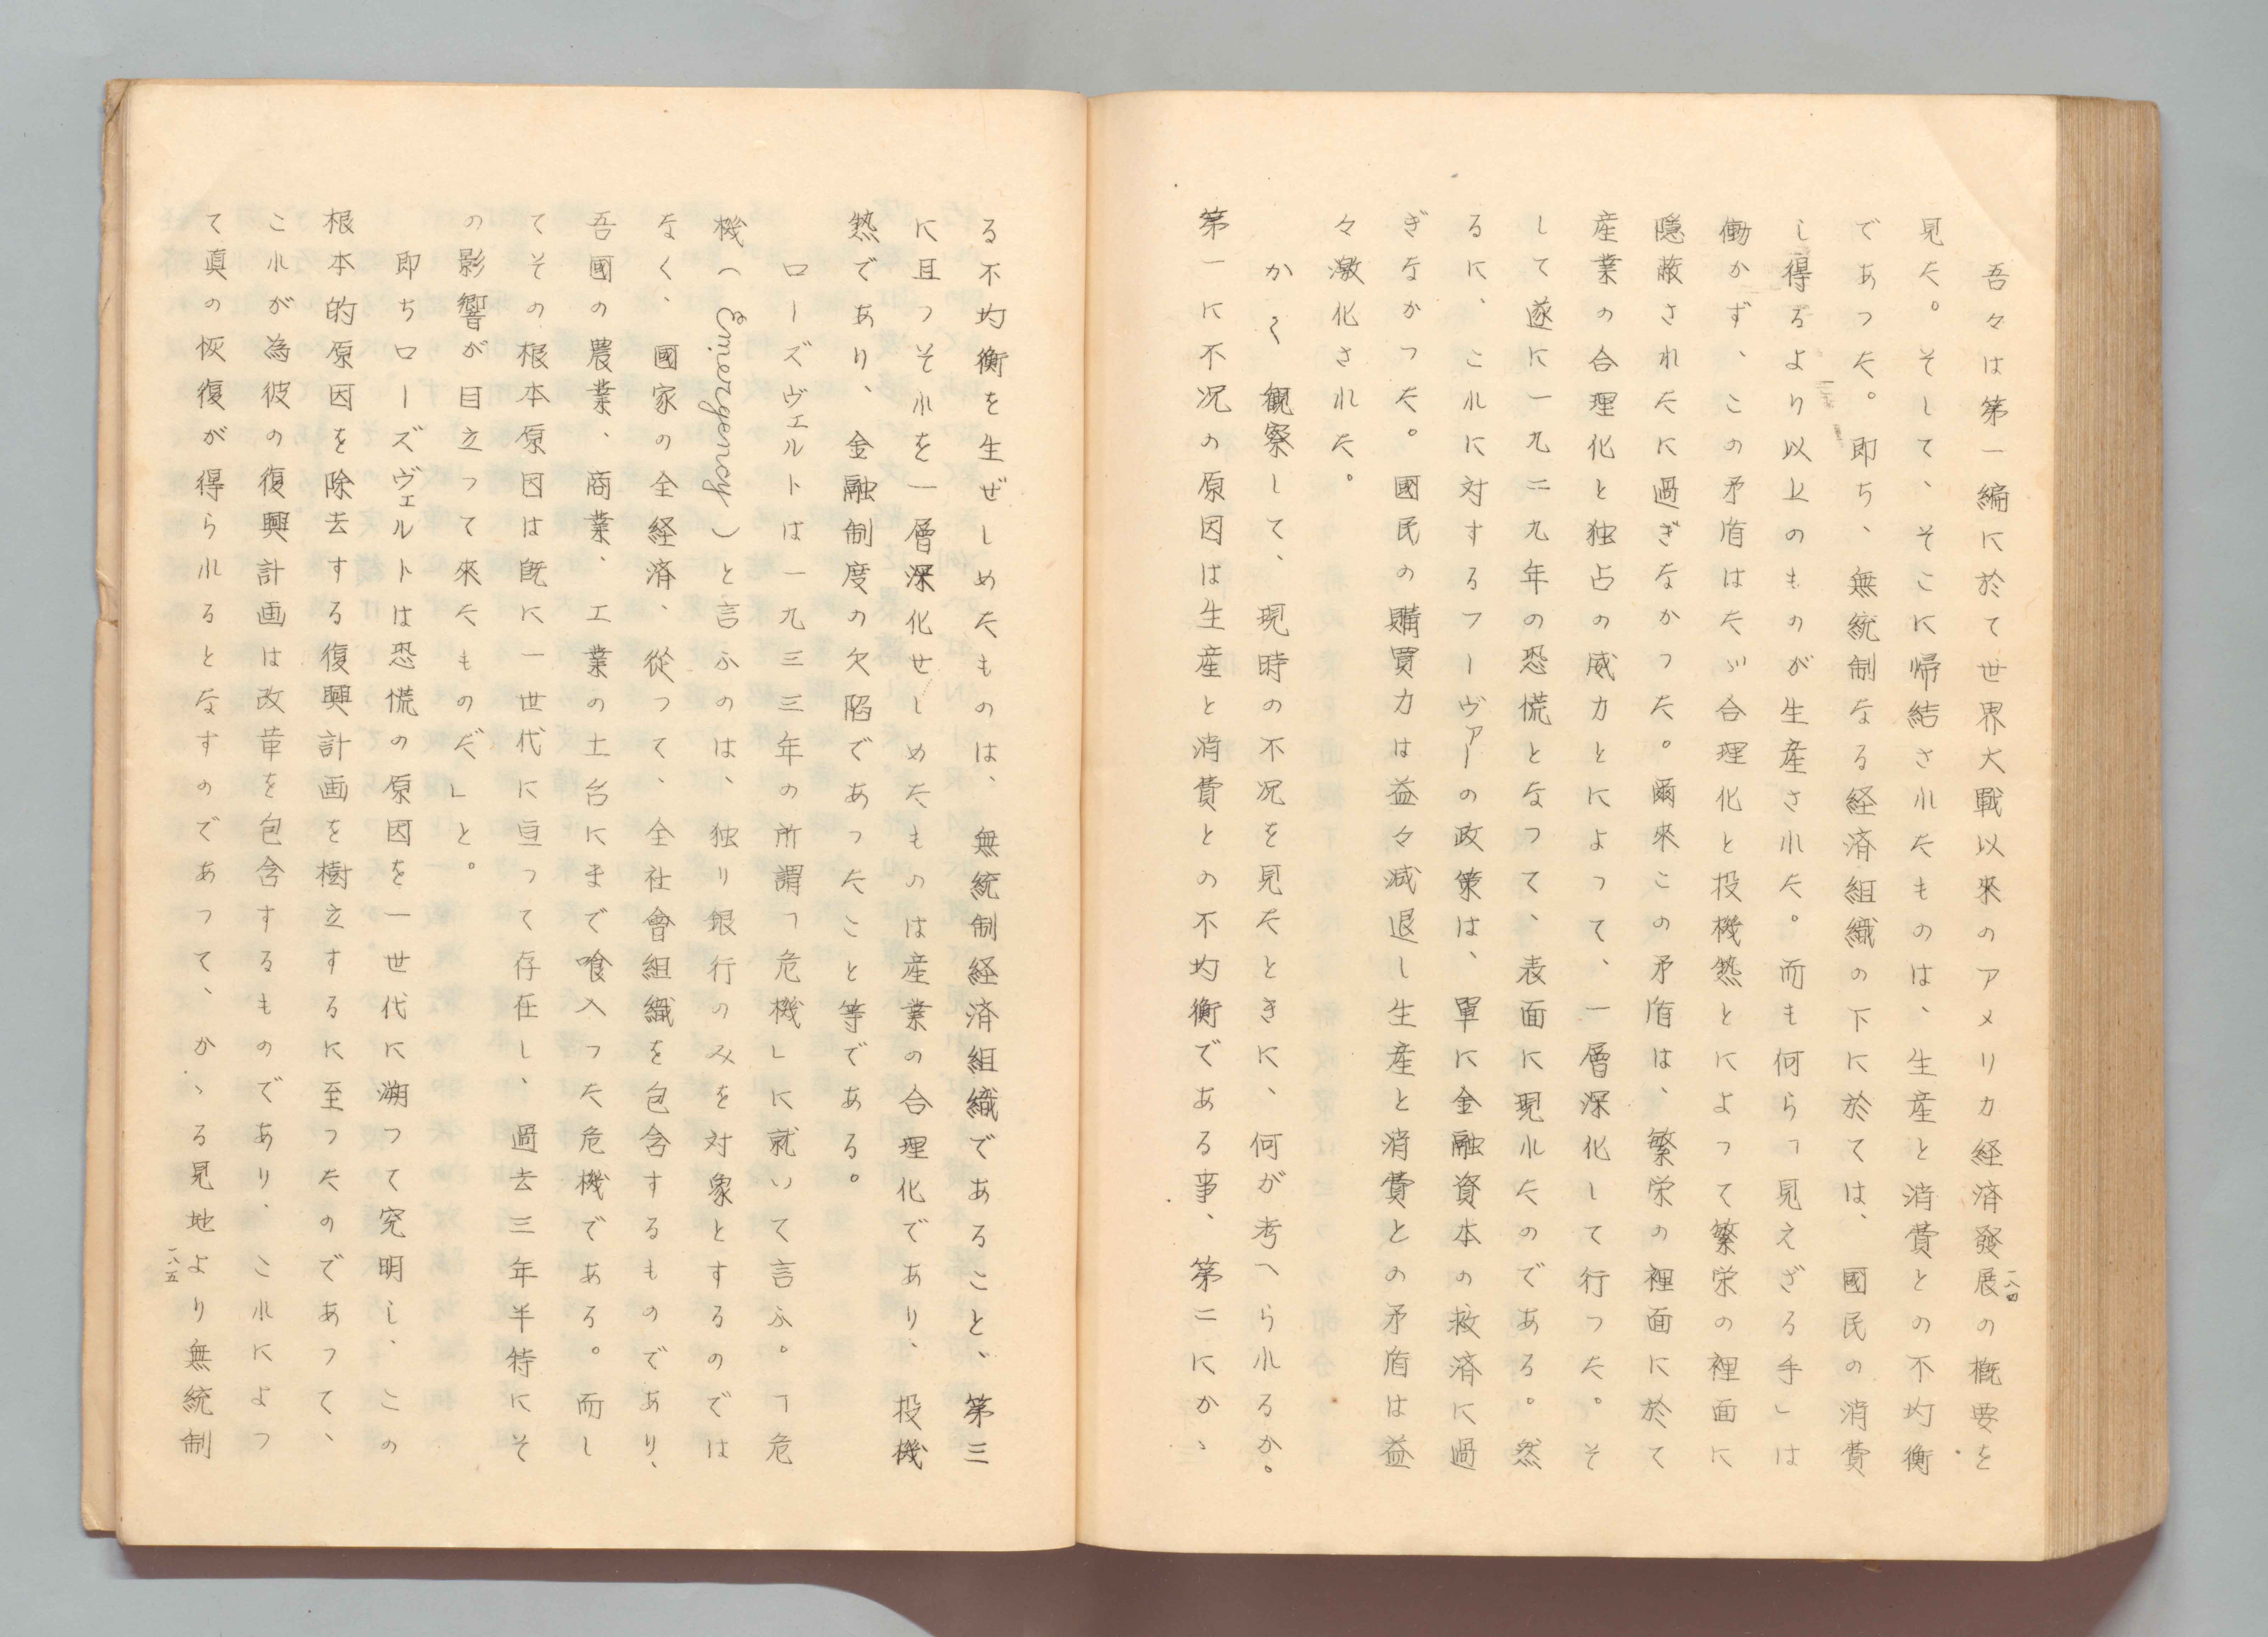 吾々は第一編に於て世界大戰以來のアメリカ経済發展の概要を
見た。そして、そこに帰結されたものは、生産と消費との不均衡
であった。即ち、無統制なる経済組織の下に於ては、國民の消費
し得るより以上のものが生産された。而も何ら「見えざる手」は
働かず、この矛盾はたゞ合理化と投機熱とによって繁栄の裡面に
隠蔽されたに過ぎなかった。爾來この矛盾は、繁栄の裡面に於て
産業の合理化と独占の威力とによって、一層深化して行った。そ
して遂に一九二九年の恐慌となって、表面に現れたのである。然
るに、これに対するフーヴァーの政策は、單に金融資本の救済に過
ぎなかった。國民の購買力は益々減退し生産と消費との矛盾は益
々激化された。
かく観察して、現時の不況を見たときに、何が考へられるか。
第一に不況の原因は生産と消費との不均衡である事、第二にかゝ
一八四
る不均衡を生ぜしめたものは、無統制経済組織であること、第三
に且つそれを一層深化せしめたものは産業の合理化であり、投機
熱であり、金融制度の欠陥であったこと等である。
ローズヴェルトは一九三三年の所謂「危機」に就いて言ふ。「危
機(Emergency)と言ふのは、独り銀行のみを対象とするのでは
なく、國家の全経済、從って、全社會組織を包含するものであり、
吾國の農業、商業、工業の土台にまで喰入った危機である。而し
てその根本原因は既に一世代に亘って存在し、過去三年半特にそ
の影響が目立って來たものだ」と。
即ちローズヴェルトは恐慌の原因を一世代に溯って究明し、この
根本的原因を除去する復興計画を樹立するに至ったのであって、
これが為彼の復興計画は改革を包含するものであり、これによっ
て真の恢復が得られるとなすのであって、かゝる見地より無統制
一八五